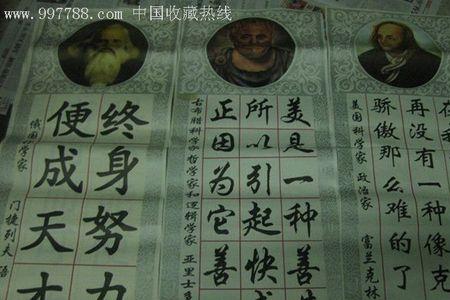 www.997788.com 中国收藏热线
再没有一种像克
骄傲那么难的了
美国科学家 政治家 富兰克林
美是一种善
所以引起快
正因为它善
古希腊科学家哲学家和逻辑学家 亚里士多
终身努力
便成天才
门捷列夫